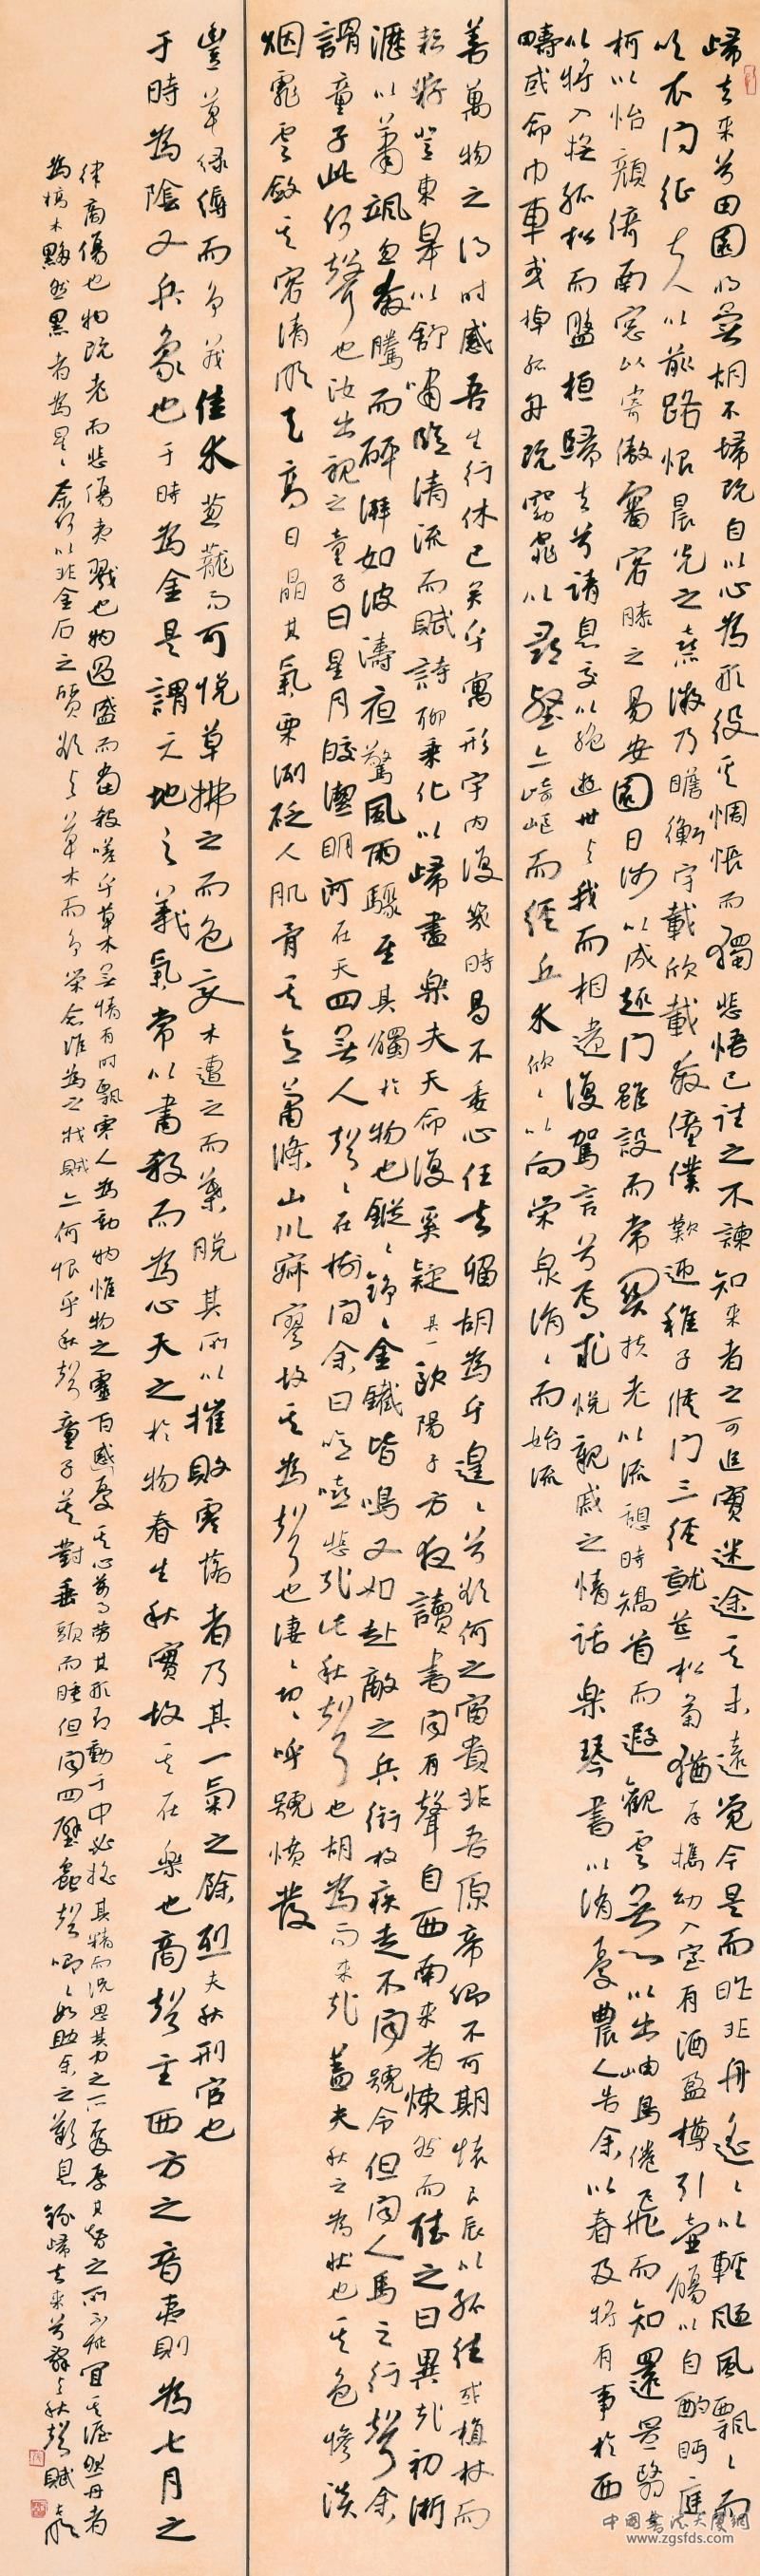 歸去来兮田園将蕪胡不歸既自以心為形役奚惆悵而獨悲悟已往之不諫知来者之可追實迷途其未遠覺今是而昨非舟遥々以輕颺風飄々而
吹衣问征夫以前路恨晨光之熹微乃瞻衡宇載欣載奔僮僕歡迎稚子候门三徑就荒松菊猶存攜幼入室有酒盈樽引壶觴以自酌眄庭
柯以怡顏倚南窓以寄傲審容膝之易安園日涉以成趣门雖設而常関扶老以流憩時矯首而遐觀雲無心以出岫鳥倦飛而知還景翳
以将入撫孤松而盤桓歸去兮請息交以绝遊世与我而相遗復駕言兮焉求悦親戚之情話樂琴書以消憂農人告余以春及将有事於西
疇或命巾車或棹孤舟既窈窕以尋壑亦崎嶇而經丘木欣々以向榮泉涓々而始流
善萬物之得时感吾生行休已矣乎寓形宇内復幾時曷不委心任去留胡為乎遑々兮欲何之富貴非吾原帝鄉不可期懷良辰以孤往或植杖而
耘耔登東皐以舒嘯臨清流而賦詩聊乘化以歸盡樂夫天命復奚疑其一歐陽子方夜讀書闻有聲自西南来者悚然而聽之曰異哉初淅
瀝以蕭颯忽奔騰而砰湃如波濤夜驚風雨驟至其觸於物也鏦々錚々金鐵皆鳴又如赴敵之兵銜枚疾走不闻號令但闻人馬之行聲余
謂童子此何聲也汝出視之童子曰星月皎潔明河在天四無人聲々在樹间余曰噫嘻悲哉此秋聲也胡為而来哉蓋夫秋之為狀也其色慘淡
烟霏雲斂其容清明天高日晶其氣栗冽砭人肌骨其意蕭條山川寂寥故其為聲也淒々切々呼號憤發
豐草绿縟而争茂佳木蔥蘢而可悦草拂之而色变木遭之而葉脱其所以摧敗零落者乃其一氣之餘烈夫秋刑官也
于時為陰又兵象也于時為金是謂天地之義氣常以肅殺而為心天之於物春生秋實故其在樂也商聲主西方之音夷則為七月之
律商傷也物既老而悲傷夷戮也物過盛而當殺嗟乎草木無情有时飄零人為動物惟物之靈百感憂其心萬事勞其形有動于中必摇其精而况思其力之所不及憂其智之所不能宜其渥然丹者
為槁木黟然黑者為星々奈何以非金石之質欲与草木而争榮念誰為之戕賊亦何恨乎秋聲童子莫對垂頭而睡但闻四壁蟲聲唧々如助余之歎息 錄歸去来兮辭与秋聲賦
中国书法大厦网
www.zgsfds.com